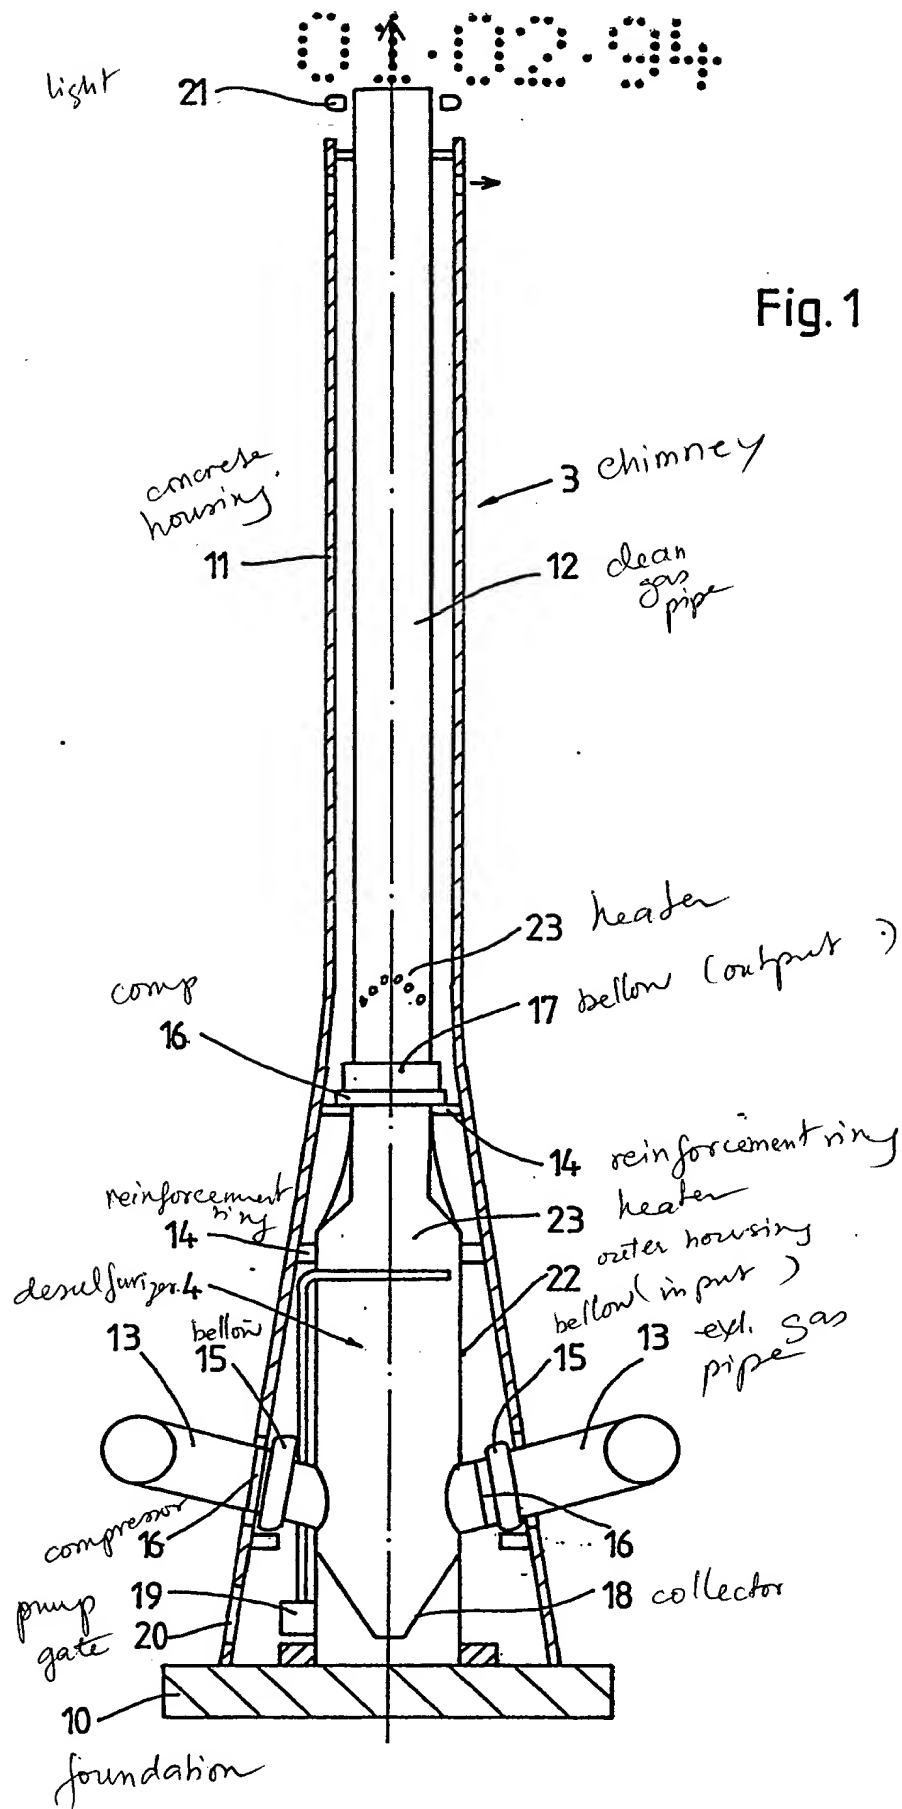 01.02.94
light 21
Fig. 1
concrete
housing
3 chimney
11
12 clean
gas
pipe
23 heater
comp
17 bellow (output)
16
14 reinforcement ring
reinforcement
ring
14
23 heater
outer housing
22
desulfurizer 4
bellow (input)
bellow
13
15
15
13 gas
pipe
compressor
16
16
pump
19
18 collector
gate 20
10
foundation